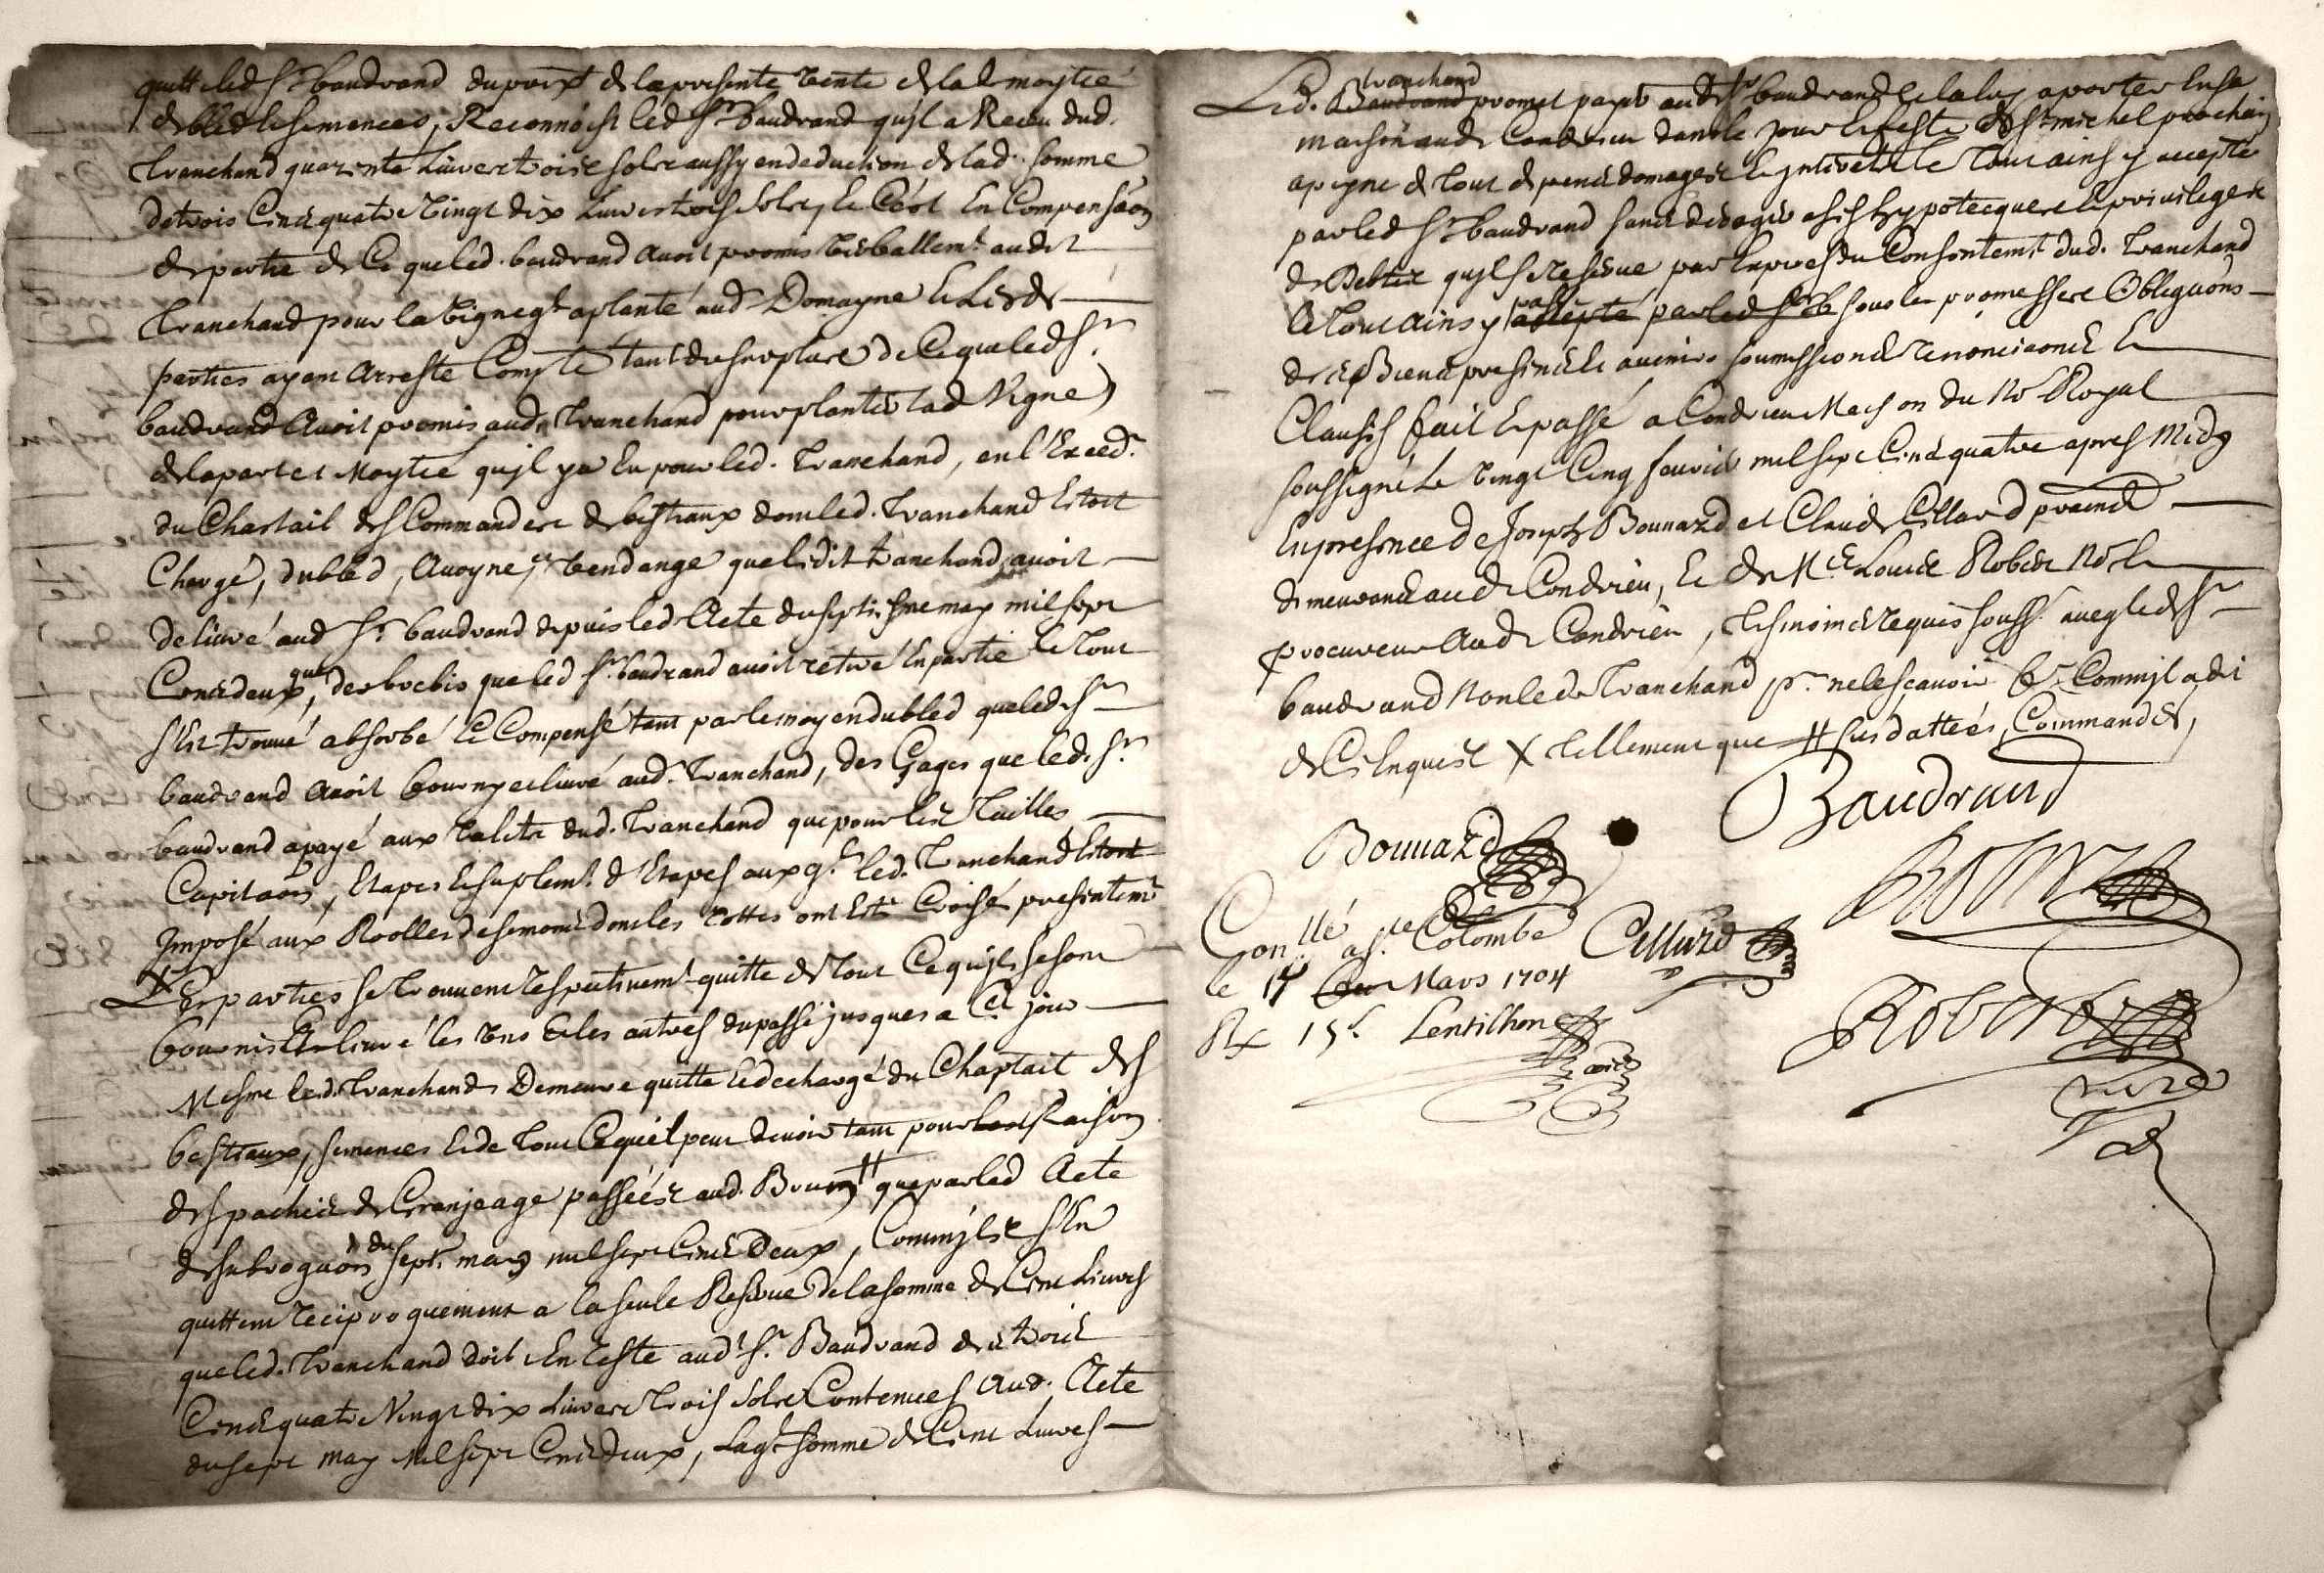 quitte led Sr baudrand du prix de la presente vente de lad moytié
de bled et semences, Reconnoist led Sr baudrand qu'jl a Receu dud.
tranchand quarante livres trois solz aussy en deduction de lad. somme
de trois Cens quatre vingt dix livres trois solz, et C'est En Compensaon
de partie de Ce que led. baudrand avoit promis verballemt audit
tranchand pour la vigne q'l a planté aud Domayne Et Lesdes
parties ayant Arresté Compte tant du surplus de Ce que led Sr
baudrand Avoit promis aud. tranchand pour planter lad Vigne
de la part et Moytié qu'jl y a Eu pour led. tranchand, en l'Exced.
du Chastail des Commandes de bestiaux dont led. tranchand Estoit
Chargé, du bled, Avoyne, et vendange que ledit tranchand avoit
delivré aud Sr. baudrand depuis led Acte du septiesme may mil sept
Cens deux, que des brebis que led Sr baudrand avoit retiré En partie Le Tout
s'Est trouvé absorbé Et Compensé tant par le moyen du bled que led Sr
baudrand Avoit fourny et livré aud. tranchand, des Gages que led. Sr.
baudrand a payé aux valets dud. tranchand que pour les Tailles
Capitaon, Etapes Et suplemt. d'Etapes aux qls led. tranchand Estoit
Jmposé aux Roolles desmoins dont les Cottes ont Esté Croisé presentemt
Les parties se trouvent respectivemt. quitte de Tout Ce qu'jls se sont
fournis Et livré les uns Et les autres du passé jusques a Ce jour
Mesme led. tranchand Demeure quitte Et dechargé du Chaptail des
bestiaux, semences Et de Tout Ce qu'il peut devoir tant pour Raison
des pachies de Granjeage passées aud. que par led Acte
de subrogaon du sept. may mil sept Cens Deux, Comm'jls s'En
quittent reciproquement a la seule Reserve de la somme de Cent Livres
que led. tranchand doit En reste aud. Sr. Baudrand des trois
Cens quatre Vingt dix Livres Trois Solz Contenues Aud. Acte
du sept may Mil sept Cens deux, Laqle somme de Cent Livres
Led. Baudrand tranchand promet payer audt Sr baudrand et la luy aporter En sa
maison aud. Condrieu dans le jour et feste de St michel prochain
a peyne de Tout depens domages Et jnterets Le Tout ainsy accepté
par led Sr baudrand sans deroger a ses hypotecques Et privileges
de Debtes qu'jl se reserve par Expres du Consentemt dud. tranchand
Le Tout ainsy passé accepté par led Sr B sous les promesses Obligaons
de ses Biens presents Et avenirs soumissions renonciaons Et
Clauses fait Et passé a Condrieu Maison du Nore Royal
soussigné Le vingt Cinq fevrier mil sept Cens quatre apres Midy
En presence de Joseph Bonnard et Claude Cellard praend
demeurants aud. Condrieu, Et de Me Louis Robert Nore Et
procureur Aud. Condrieu, tesmoins requis souss. avec led Sr
baudrand Non led. tranchand pr. ne le scavoir Comm'jl a dit
de Ce Enquis X tellement que # susdattées, Commandes,
Baudrand
Bonnard
Conllé a Ste Colombe
Cellard
le 14 Mars 1704
Rx 15 s. Lentilhon
Robert